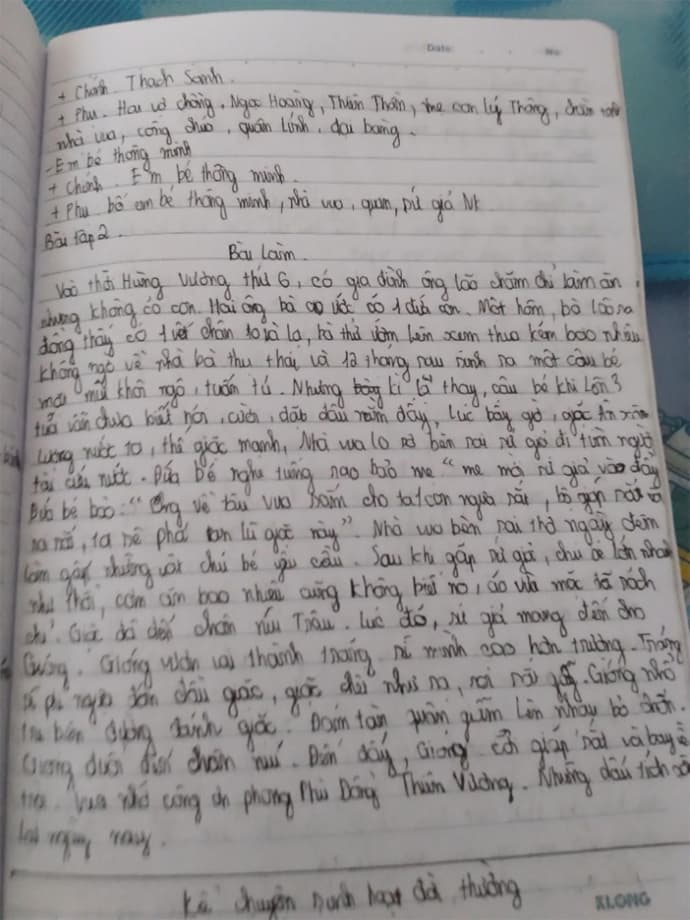 Date No
+ Chính. Thạch Sanh.
+ Phụ. Hai vợ chồng, Ngọc Hoàng, Thiên Thần, mẹ con Lý Thông, chằn
nhà vua, công chúa, quân lính, đại bàng.
- Em bé thông minh
+ Chính. Em bé thông minh.
+ Phụ bố em bé thông minh, nhà vua, quan, sứ giả
Bài tập 2.
Bài làm.
Vào thời Hùng Vương thứ 6, có gia đình ông lão chăm chỉ làm ăn
nhưng không có con. Hai ông bà ao ước có 1 đứa con. Một hôm, bà lão ra
đồng thấy có 1 vết chân to là lạ, bà thử ướm lên xem thua kém bao nhiêu
không ngờ về nhà bà thụ thai và 12 tháng sau sinh ra một cậu bé
mặt mũi khôi ngô, tuấn tú. Nhưng kì lạ thay, cậu bé khi lên 3
tuổi vẫn chưa biết nói, cười, đặt đâu nằm đấy, Lúc bấy giờ, giặc Ân xâm
lương nước to, thế giặc mạnh, Nhà vua lo sợ bèn sai sứ giả đi tìm người
tài cứu nước. Đứa bé nghe tiếng rao bảo mẹ "mẹ mời sứ giả vào đây
Đứa bé bảo: "Ông về tâu vua sắm cho ta 1 con ngựa sắt, bộ giáp sắt và
ta sẽ phá tan lũ giặc này". Nhà vua bèn sai thợ ngày đêm
làm gấp những vật chú bé yêu cầu. Sau khi gặp sứ giả, chú bé lớn nhanh
như thổi, cơm ăn bao nhiêu cũng không biết no, áo vừa mặc đã rách
chỉ. Giặc đã đến chân núi Trâu. Lúc đó, sứ giả mang đến cho
Gióng. Gióng vươn vai thành tráng sĩ mình cao hơn trượng. Tráng
sĩ phi ngựa đến đâu giặc, giặc chết như rạ, roi sắt gãy. Gióng nhổ
tre bên đường đánh giặc. Đám tàn quân giẫm lên nhau bỏ chốn.
Gióng đuổi đến chân núi. Đến đấy, Gióng cởi giáp sắt và bay về
trời. Vua nhớ công ơn phong Phù Đổng Thiên Vương. Những dấu tích
ngày nay.
Kể chuyện sinh hoạt đời thường
KLONG